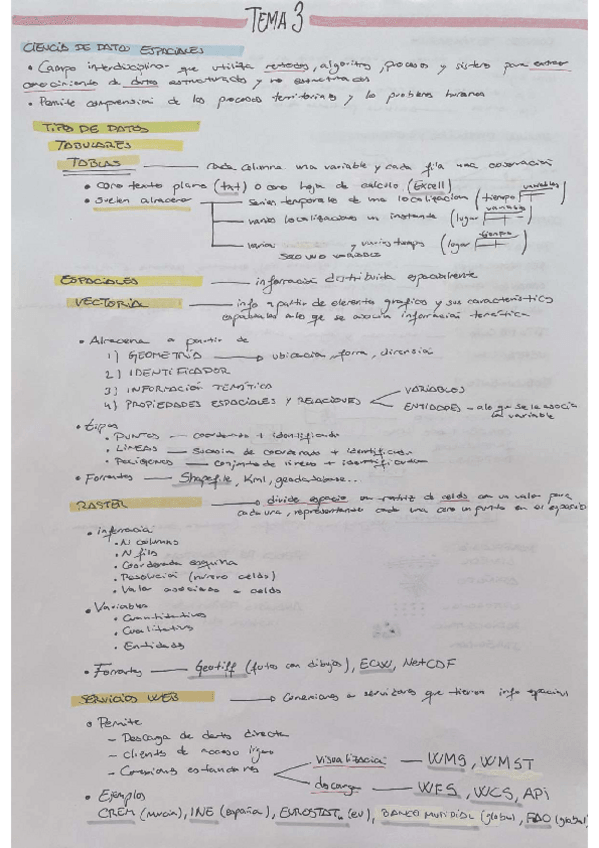 TEMA 3
CIENCIA DE DATOS ESPACIALES
• Campo interdisciplinar que utiliza metodos, algoritmos, procesos y sistemas para extraer
conocimiento de datos estructurados y no estructurados
• Permite comprension de los procesos territoriales y los problemas humanos
TIPO DE DATOS
TABULARES
TABLAS — cada columna una variable y cada fila una observación
• Como texto plano (txt) o como hoja de calculo (Excell)
• Suelen almacenar — Series temporales de una localización (tiempo variables)
— varias localizaciones un instante (lugar variables)
— varias y varios tiempos (lugar tiempo)
Solo una variable
ESPACIALES — información distribuida espacialmente
VECTORIAL — info a partir de elementos graficos y sus características
espaciales a lo que se asocia información temática
• Almacena a partir de
1) GEOMETRÍA → ubicación, forma, dimensión
2) IDENTIFICADOR
3) INFORMACIÓN TEMÁTICA
4) PROPIEDADES ESPACIALES Y RELACIONES — VARIABLES
ENTIDADES — a lo que se le asocia
la variable
• tipos
• PUNTOS — coordenada + identificador
• LÍNEAS — Sucesión de coordenadas + identificador
• POLÍGONOS — conjunto de lineas + identificador
• Formatos — Shapefile, Kml, geodatabase...
RASTER → divide espacio en matriz de celdas con un valor para
cada una, representando cada una como un punto en el espacio
• información
• N columnas
• N filas
• Coordenada esquina
• Resolución (numero celdas)
• Valor asociado a celdas
• Variables
• Cuantitativas
• Cualitativas
• Entidades
• Formatos — Geotiff (fotos con dibujos), ECW, NetCDF
SERVICIOS WEB → Conexiones a servidores que tienen info espacial
• Permite
– Descarga de datos directa
– clientes de acceso ligero
– Conexiones estandares — visualización — WMS, WMST
descarga — WFS, WCS, API
• Ejemplos
CREM (murcia), INE (españa), EUROSTAT (eu), BANCO MUNDIAL (global), FAO (global)